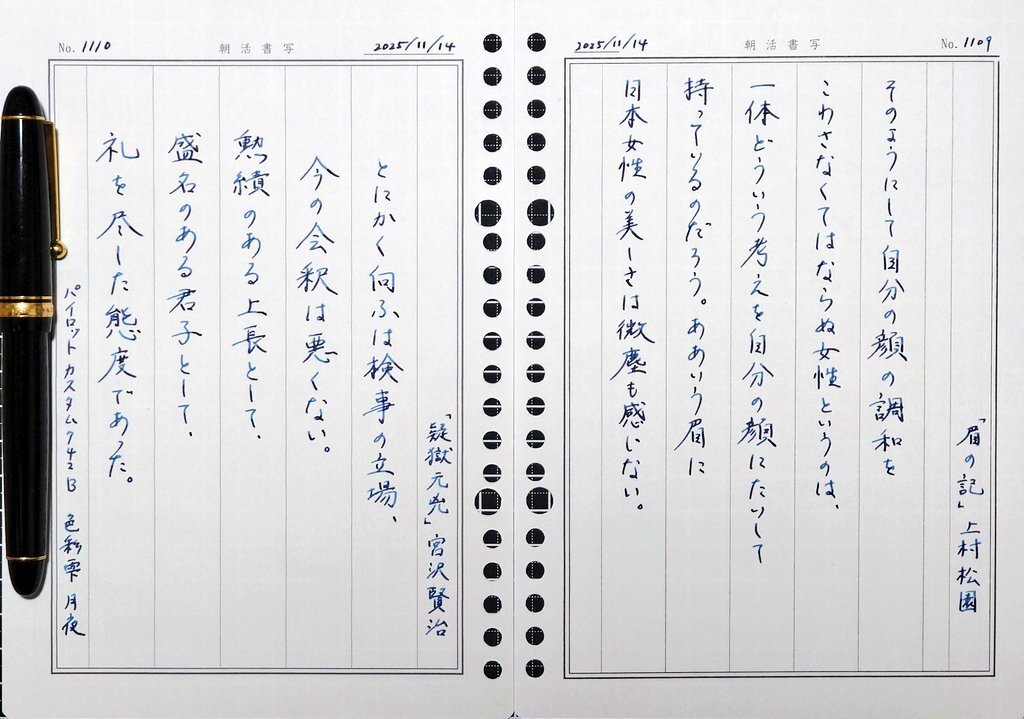 No. 1109
朝活書写
2025/11/14
「眉の記」上村松園
そのようにして自分の顔の調和を
こわさなくてはならぬ女性というのは、
一体どういう考えを自分の顔にたいして
持っているのだろう。ああいう眉に
日本女性の美しさは微塵も感じない。
No. 1110
朝活書写
2025/11/14
「疑獄元兇」宮沢賢治
とにかく向ふは検事の立場、
今の会釈は悪くない。
勲績のある上長として、
盛名のある君子として、
礼を尽した態度であった。
パイロットカスタム742B 色彩雫 月夜